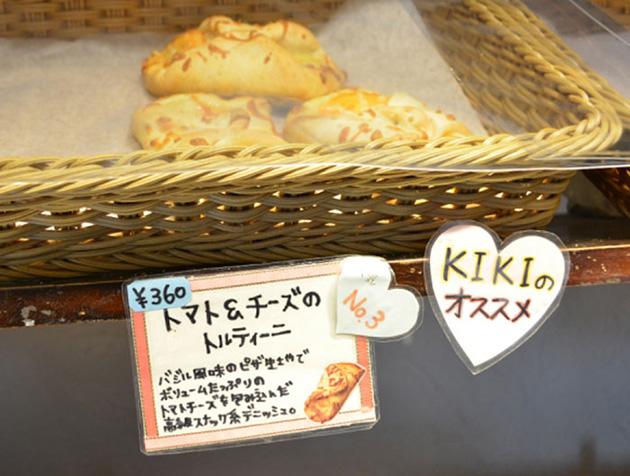 ¥360
トマト&チーズの
トルティーニ
バジル風味のピザ生地で
ボリュームたっぷりの
トマトチーズを包み込んだ
高級スナック系デニッシュ。
No.3
KIKIの
オススメ